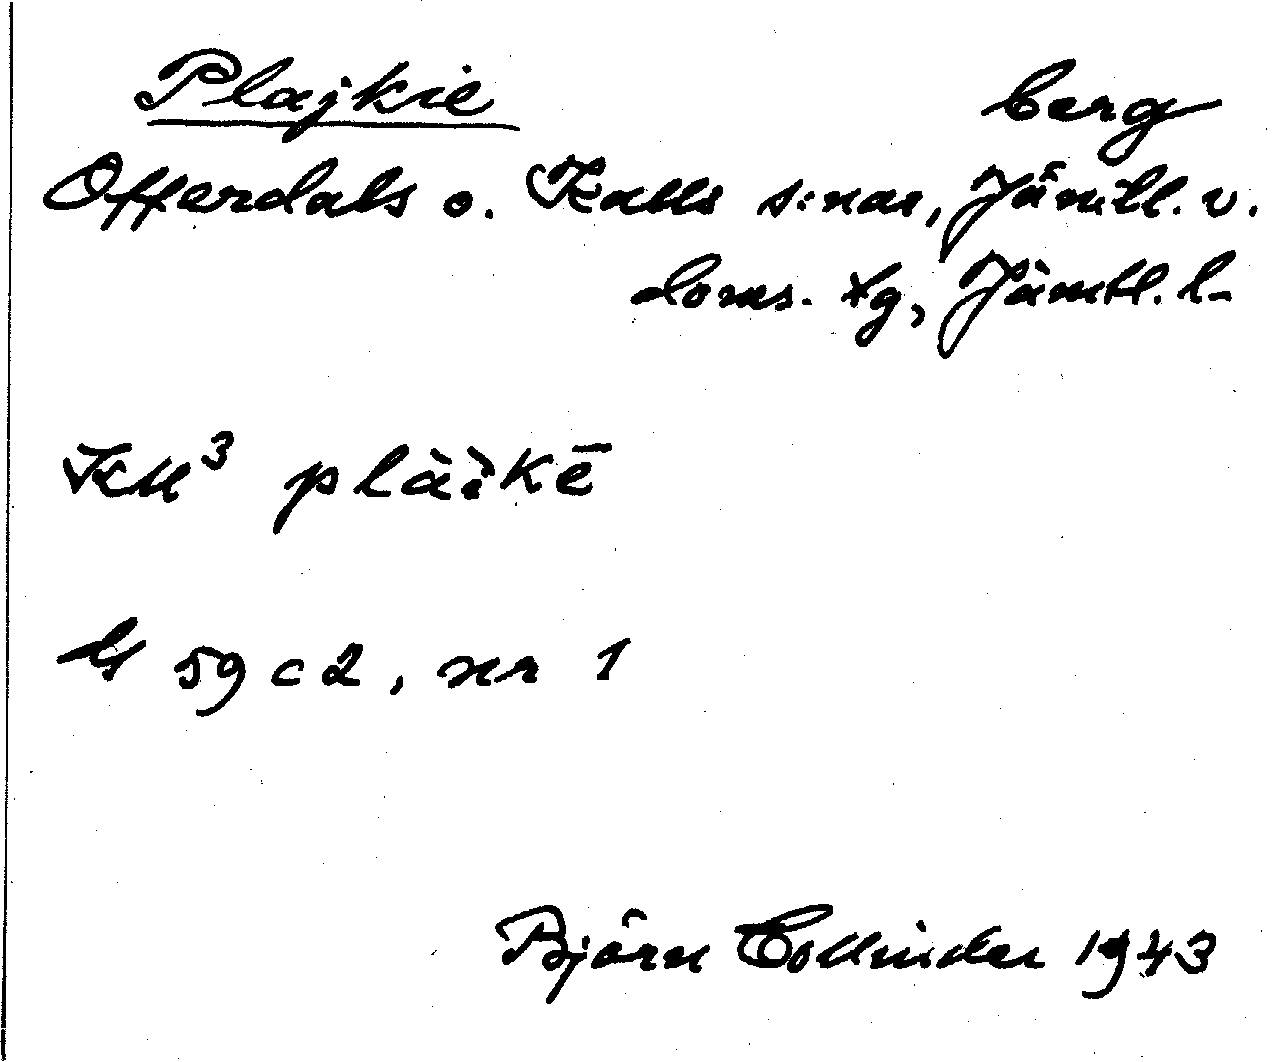 Plajkie berg
Offerdals o. Kalls s:nar, Jämtl. v.
doms. tg, Jämtl. l.
KM³ plàìkē
59 c 2, nr 1
Björn Collinder 1943